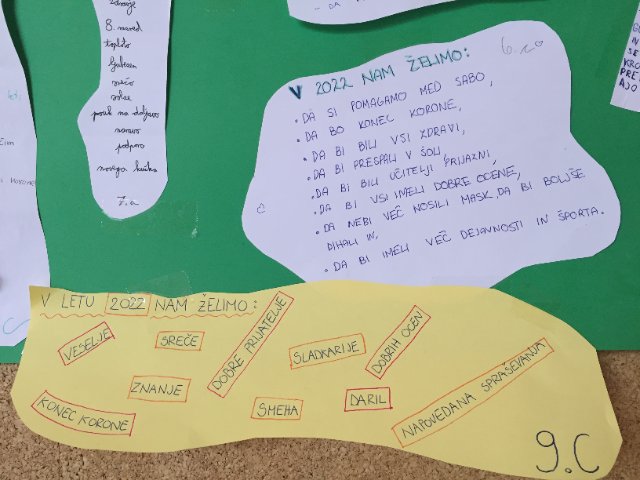 zdravje
8. narod
toploto
ljubezen
srečo
pouk na daljavo
naravo
podporo
novega kužka
7.a
6. r
V 2022 NAM ŽELIMO:
• DA SI POMAGAMO MED SABO,
• DA BO KONEC KORONE,
• DA BI BILI VSI ZDRAVI,
• DA BI PRESPALI V ŠOLI,
• DA BI BILI UČITELJI PRIJAZNI,
• DA BI VSI IMELI DOBRE OCENE,
• DA NEBI VEČ NOSILI MASK, DA BI BOLJŠE
DIHALI IN,
• DA BI IMELI VEČ DEJAVNOSTI IN ŠPORTA.
V LETU 2022 NAM ŽELIMO:
VESELJE
SREČE
DOBRE PRIJATELJE
SLADKARIJE
DOBRIH OCEN
ZNANJE
KONEC KORONE
SMEHA
DARIL
NAPOVEDANA SPRAŠEVANJA
9.C